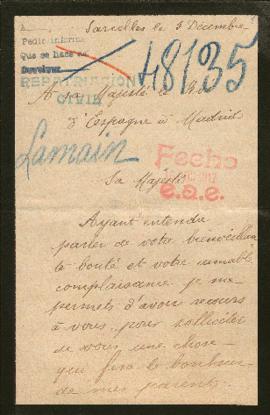 Sarcelles le 3 Décembre
Pedir informe
Que se haga
48135
REPATRIACION
CIVIL
A sa Majesté le
d'Espagne à Madrid
Lamain
Fecho
e.a.e.
Sa Majesté
Ayant entendu
parler de votre bienveillan
te bonté et votre aimable
complaisance je me
permets d'avoir recours
à vous pour solliciter
de vous une chose
qui fera le bonheur
de mes parents.